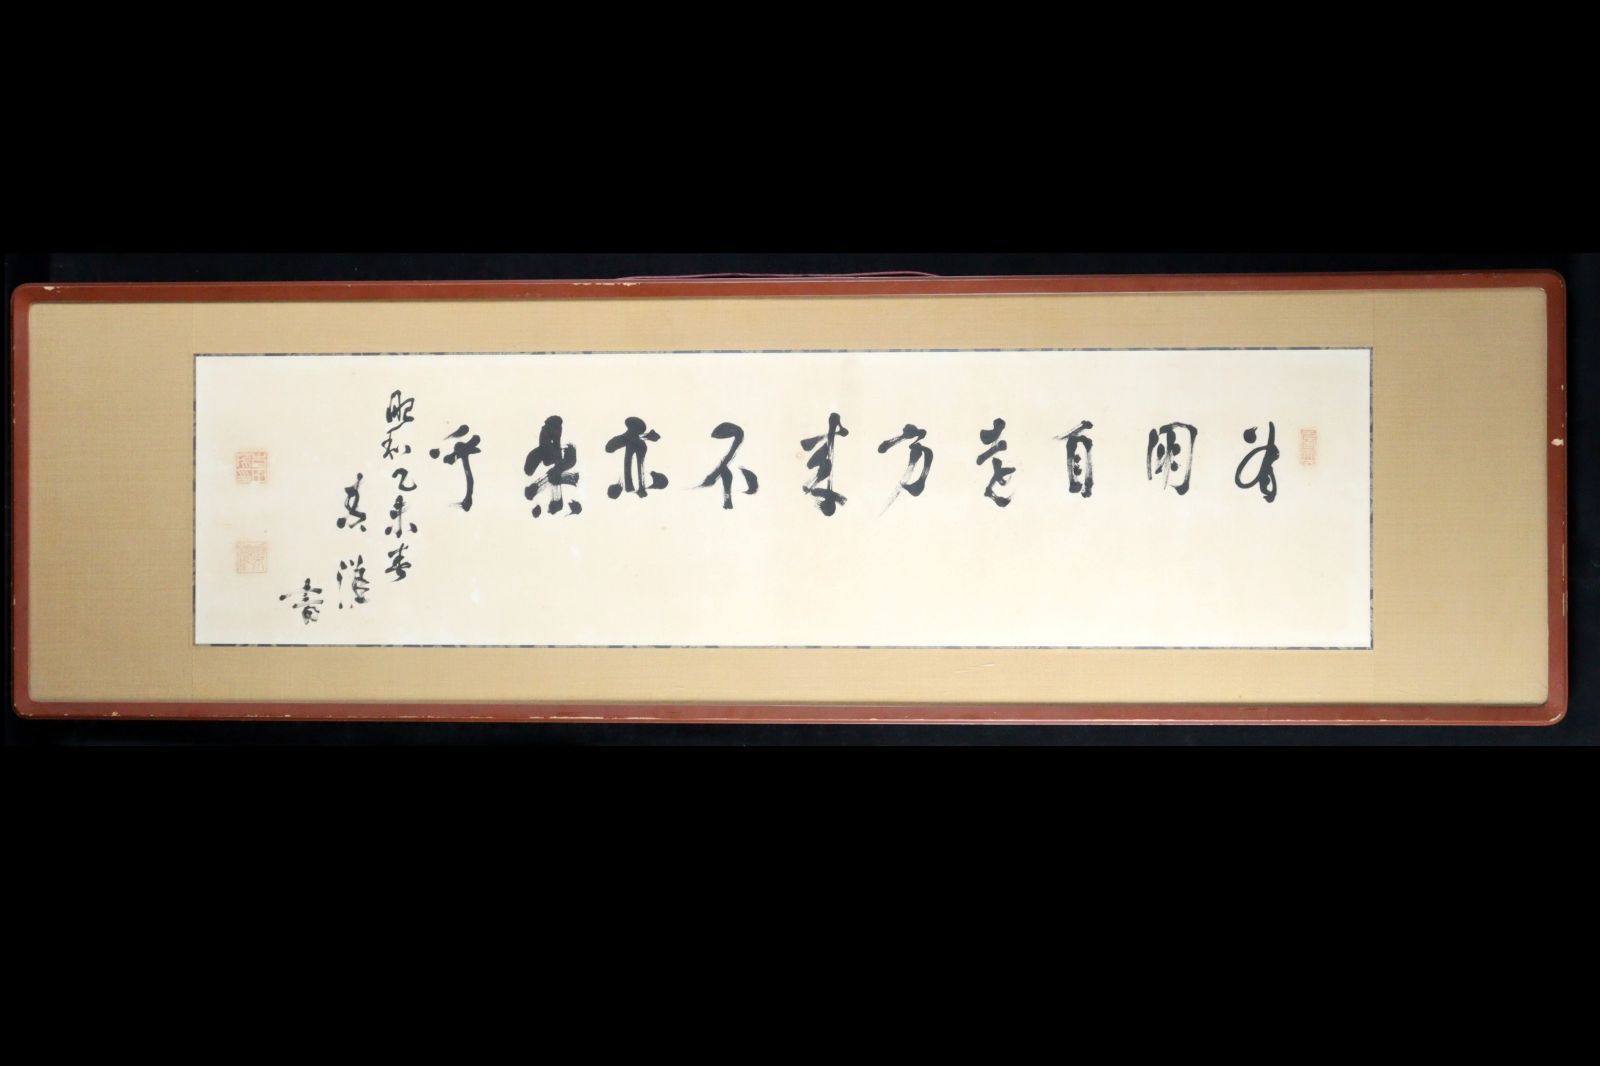 有朋自遠方来不亦楽乎
昭和乙未春
書